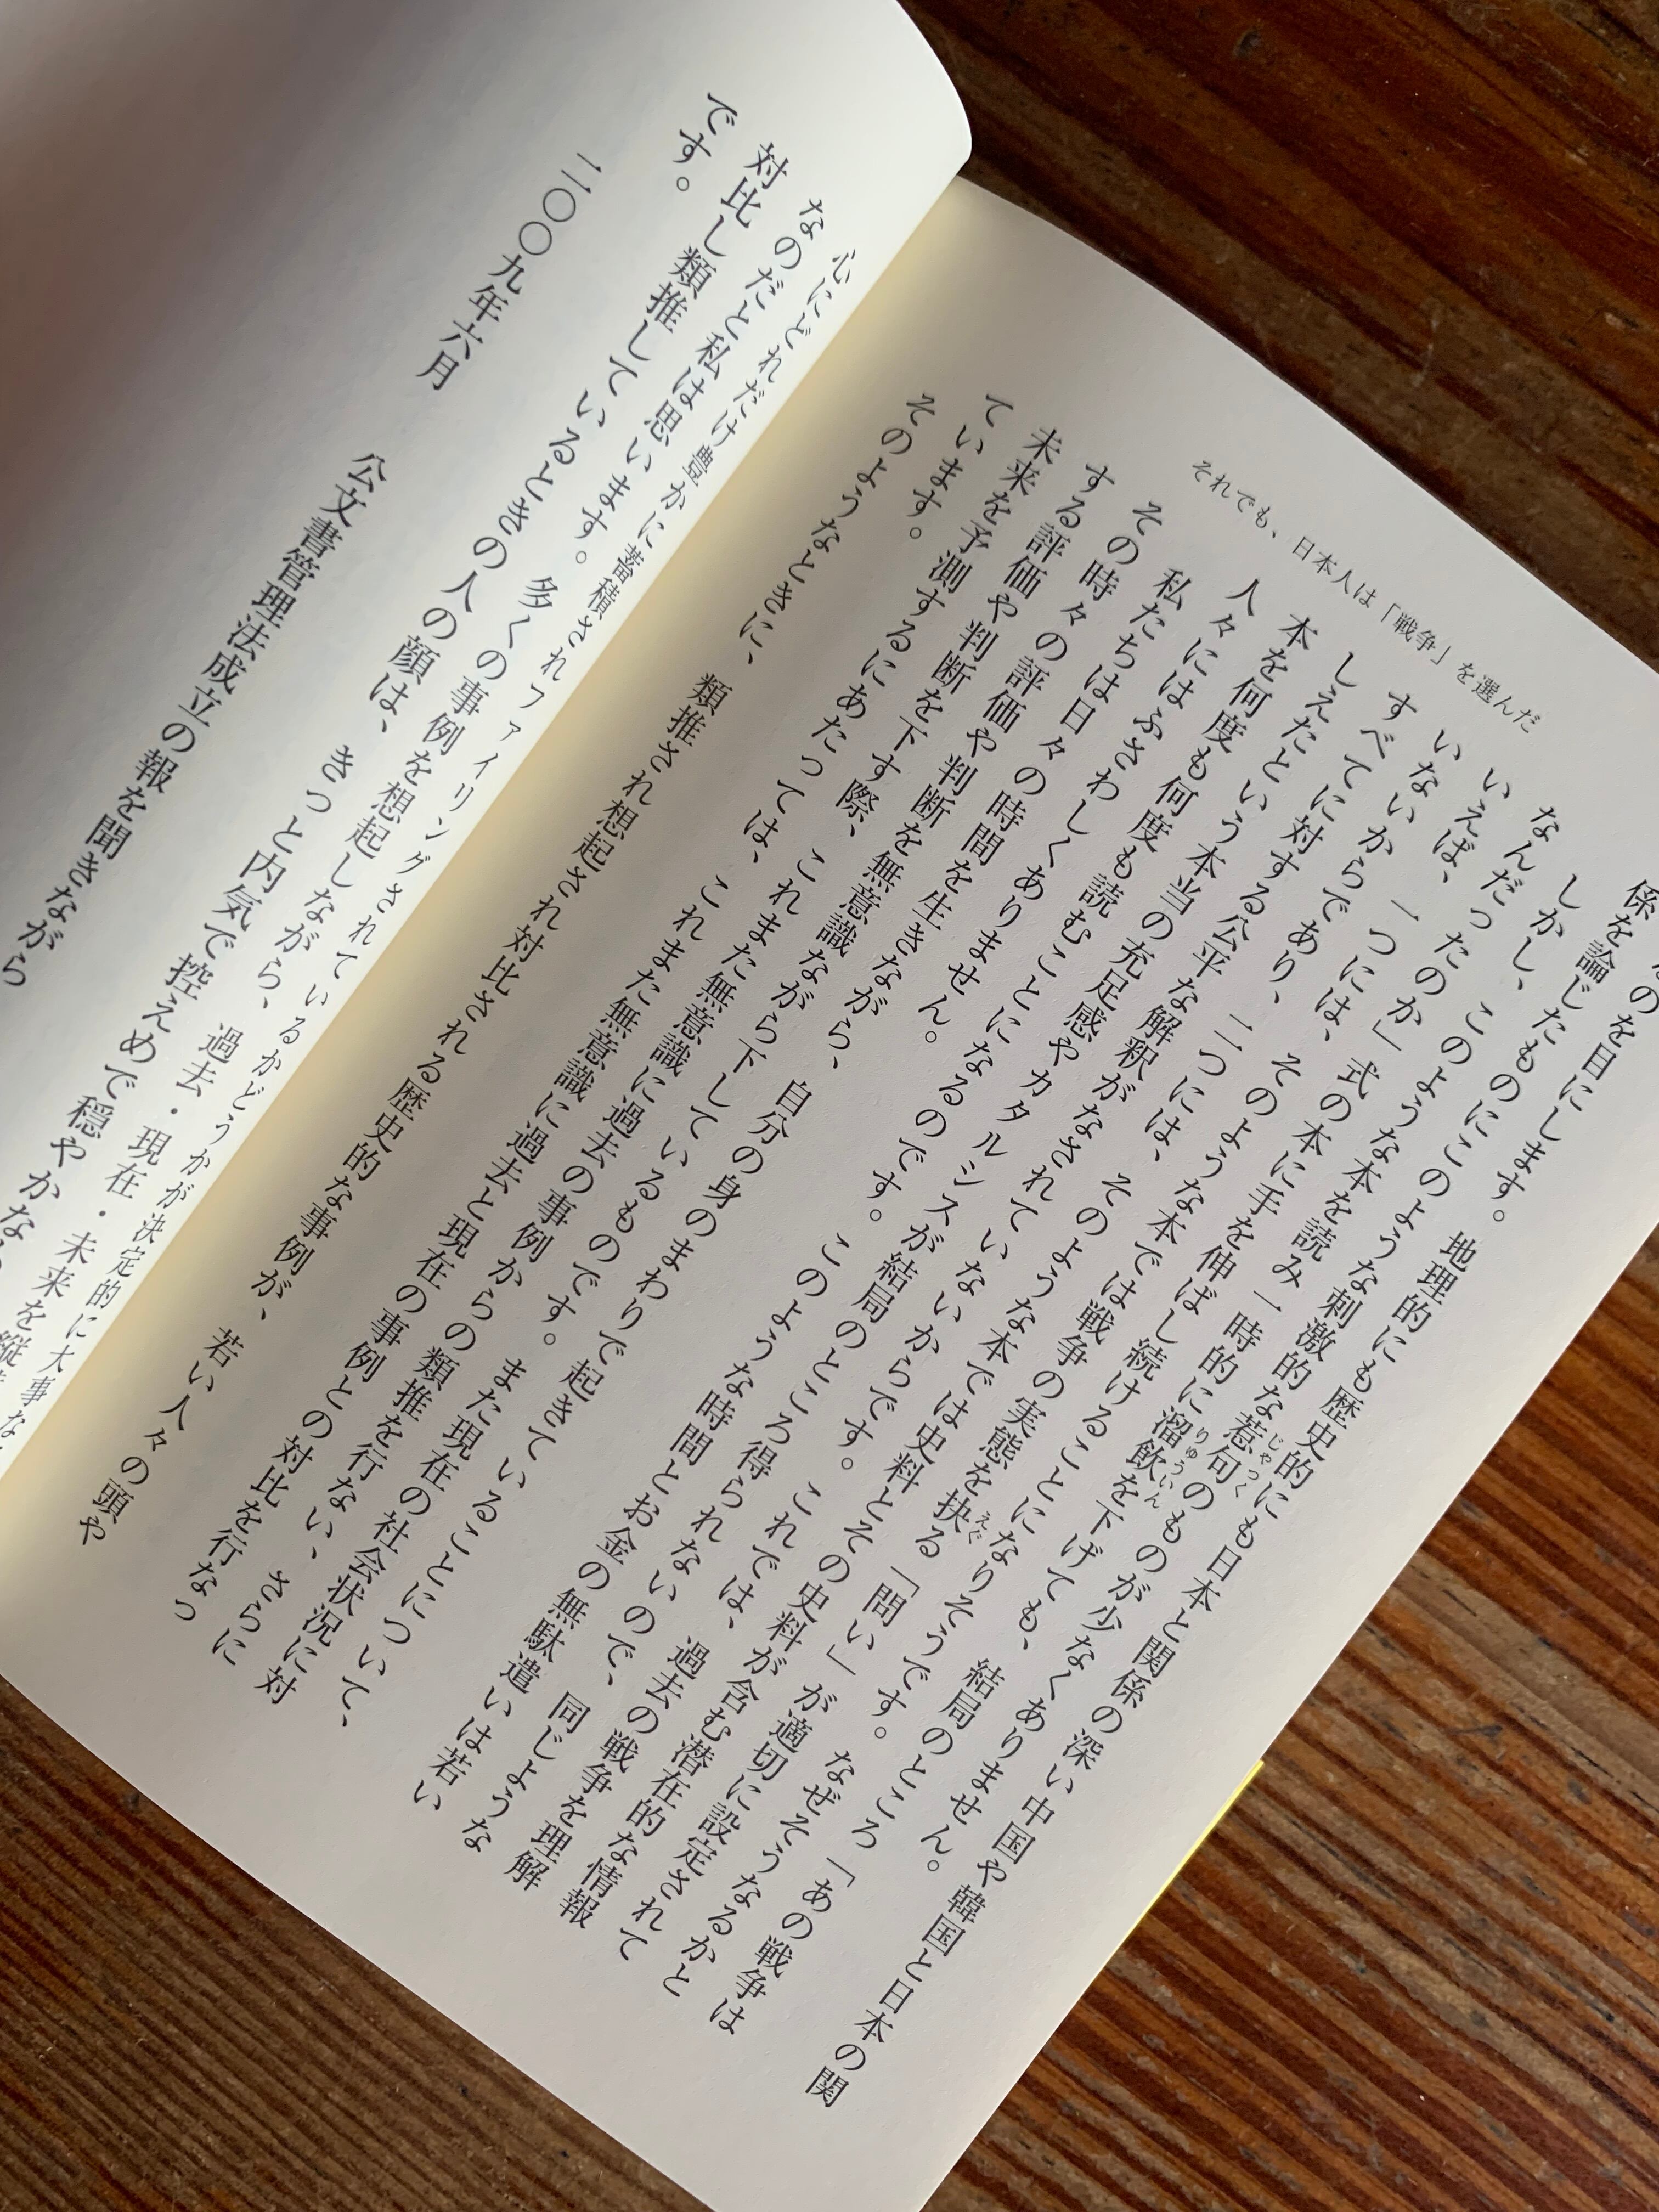 それでも、日本人は「戦争」を選んだ
のを目にします。地理的にも歴史的にも日本と関係の深い中国や韓国と日本の関
係を論じたものにこのような刺激的な惹句のものが少なくありません。
しかし、このような本を読み一時的に溜飲を下げても、結局のところ「あの戦争は
なんだったのか」式の本に手を伸ばし続けることになりそうです。なぜそうなるかと
いえば、一つには、そのような本では戦争の実態を抉る「問い」が適切に設定されて
いないからであり、二つには、そのような本では史料とその史料が含む潜在的な情報
すべてに対する公平な解釈がなされていないからです。これでは、過去の戦争を理解
しえたという本当の充足感やカタルシスが結局のところ得られないので、同じような
本を何度も何度も読むことになるのです。このような時間とお金の無駄遣いは若い
人々にはふさわしくありません。
私たちは日々の時間を生きながら、自分の身のまわりで起きていることについて、
その時々の評価や判断を無意識ながら下しているものです。また現在の社会状況に対
する評価や判断を下す際、これまた無意識に過去の事例からの類推を行ない、さらに
未来を予測するにあたっては、これまた無意識に過去と現在の事例との対比を行なっ
ています。
そのようなときに、類推され想起され対比される歴史的な事例が、若い人々の頭や
心にどれだけ豊かに蓄積されファイリングされているかどうかが決定的に大事な
なのだと私は思います。多くの事例を想起しながら、過去・現在・未来を縦
対比し類推しているときの人の顔は、きっと内気で控えめで穏やかな
です。
二〇〇九年六月
公文書管理法成立の報を聞きながら
じゃっく
りゅういん
えぐ